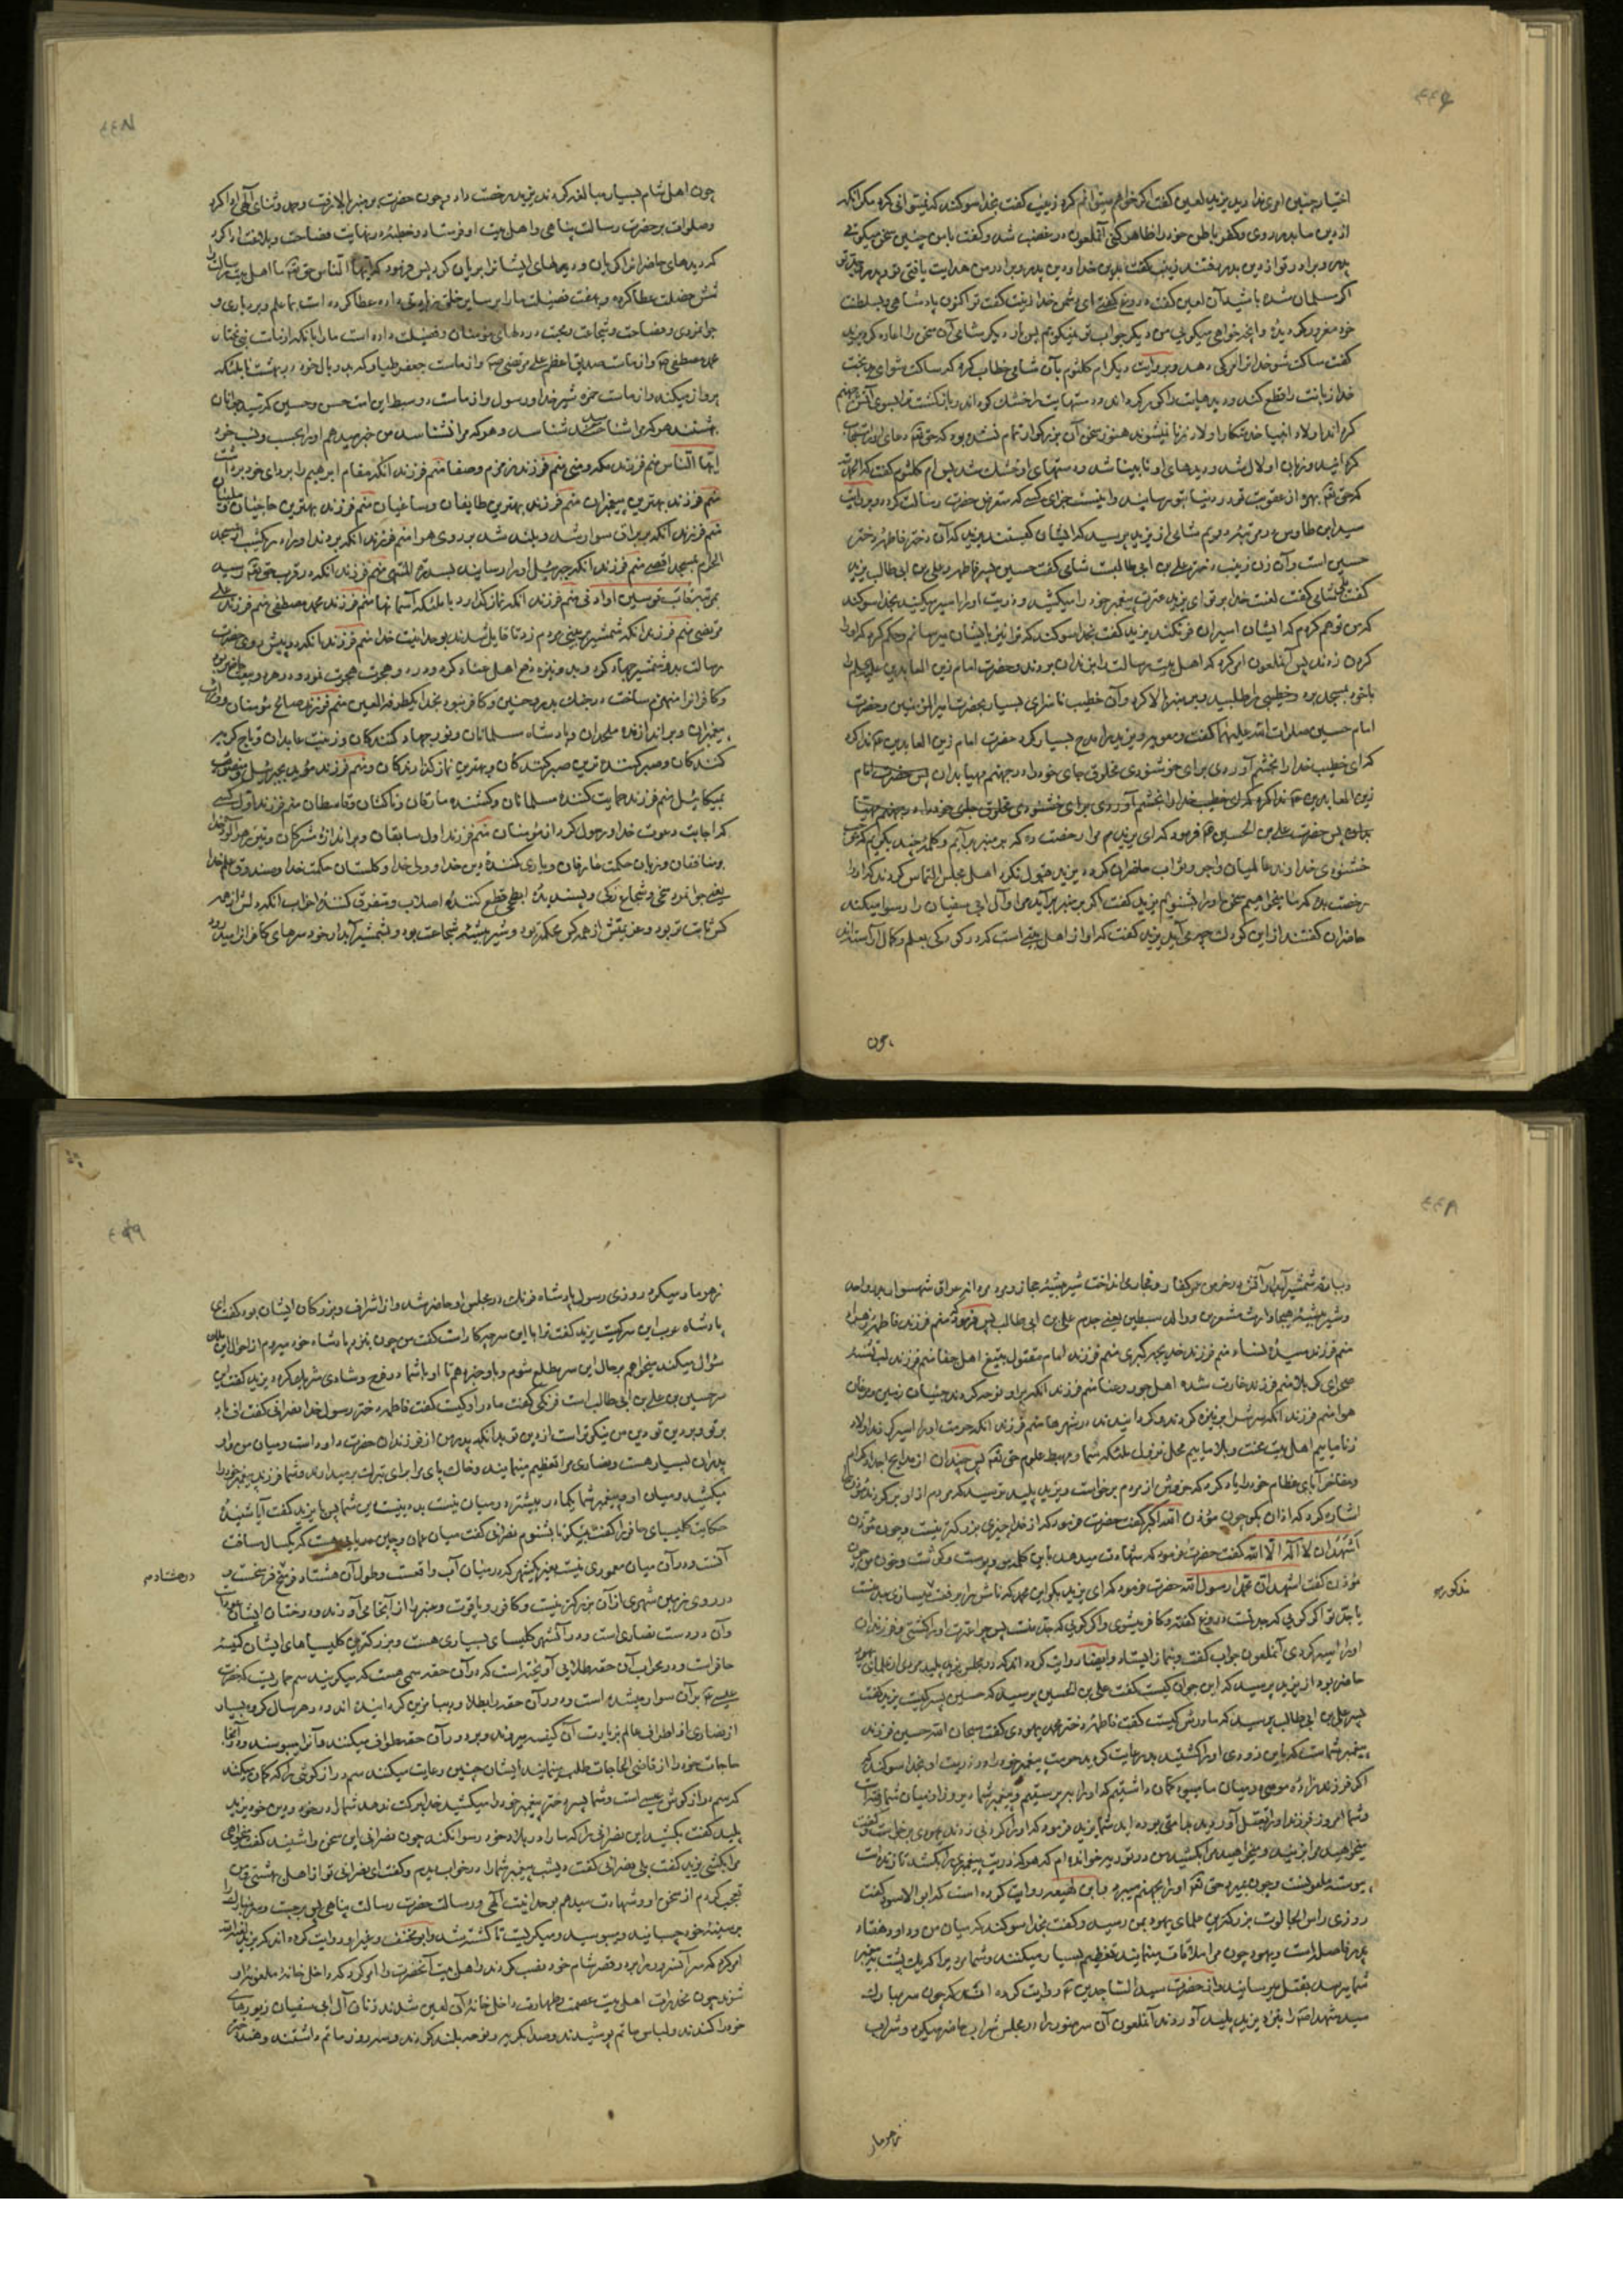 اختیار چنین امری نداری یزید لعین گفت اگر خواهم میتوانم کرد زینب گفت بخدا سوکند که نمیتوانی کرد مگر آنکه
از دین ما بدر روی و کفر باطن خود را ظاهر کنی آن ملعون در غضب شد و گفت با من چنین سخن میگوئی
پدر و برادر تو از دین بدر رفتند زینب گفت بدین خدا و دین پدر و برادر من هدایت یافتی تو و پدر و جد تو
اگر مسلمان شده باشید آن لعین گفت دروغ گفتی ای دشمن خدا زینب گفت تو اکنون پادشاهی و بسلطنت
خود مغرور گردیدهٔ و آنچه خواهی میگویی من دیگر جواب تو نمیگویم پس بار دیگر شامی آن سخن را اعاده کرد یزید
گفت ساکت شو خدا ترا مرگ دهد و بروایت دیگر ام کلثوم بآن شامی خطاب کرد که ساکت شو ای بدبخت
خدا زبانت را قطع کند و دیدهایت را کور گرداند و دستهایت را خشک گرداند و بازگشت ترا بسوی آتش جهنم
گرداند اولاد انبیا خدمتکار اولاد زنا نمیشوند هنوز سخن آن بزرگوار تمام نشده بود که حق تعالی دعای او را مستجاب
گردانید و زبان او لال شد و دیدهای او نابینا شد و دستهای او خشک شد پس ام کلثوم گفت که الحمد لله
که حق تعالی بهرهٔ از عقوبت ترا در دنیا بتو رسانید و اینست جزای کسی که متعرض حضرت رسالت گردد و بروایت
سید ابن طاوس در مرتبهٔ دویم شامی از یزید پرسید که ایشان کیستند یزید گفت آن دختر فاطمه دختر
حسین است و آن زن زینب دختر علی بن ابی طالبست شامی گفت حسین پسر فاطمه و علی بن ابی طالب یزید
گفت بلی شامی گفت لعنت خدا بر تو ای یزید عترت پیغمبر خود را میکشید و ذریت او را اسیر میکنید بخدا سوکند
که من توهم کردم که ایشان اسیران فرنگند یزید گفت بخدا سوکند که ترا نیز بایشان میرسانم و حکم کرد که او را
گردن زدند پس آن ملعون امر کرد که اهل بیت رسالت را بزندان بردند و حضرت امام زین العابدین علیه السلام را
با خود بمسجد برد و خطیبی را طلبید و بر منبر بالا کرد و آن خطیب ناسزای بسیار بحضرت امیر المؤمنین و حضرت
امام حسین صلوات الله علیهما گفت و معویه و یزید را مدح بسیار کرد حضرت امام زین العابدین ع ندا کرد
که ای خطیب خدا را بخشم آوردی برای خوشنودی مخلوق جای خود را در جهنم مهیا بدان پس حضرت امام
زین العابدین ع ندا کرد که ای خطیب خدا را بخشم آوردی برای خوشنودی مخلوق جای خود را در جهنم مهیا
بدان پس حضرت علی بن الحسین ع فرمود که ای یزید مرا رخصت ده که بر منبر برآیم و کلمهٔ چند بگویم که موجب
خشنودی خداوند عالمیان و اجر و ثواب حاضران گردد یزید قبول نکرد اهل مجلس التماس کردند که او را
رخصت بده که ما میخواهیم سخن او را بشنویم یزید گفت اگر بر منبر برآید مرا و آل ابی سفیان را رسوا میکند
حاضران گفتند از این کودک چه می‌آید یزید گفت که او از اهل بیتی است که در کودکی بعلم و کمال آراسته‌اند
چون
چون اهل شام بسیار مبالغه کردند یزید رخصت داد و چون حضرت بر منبر بالا رفت و حمد و ثنای الهی ادا کرد
و صلوات بر حضرت رسالت پناهی و اهل بیت او فرستاد و خطبهٔ در نهایت فصاحت و بلاغت ادا کرد
که دیدهای حاضرانرا گریان و دلهای ایشانرا بریان کرد پس فرمود که ایها الناس حق تعالی ما اهل بیت رسالت را
شش خصلت عطا کرده و بهفت فضیلت ما را بر سایر خلق زیادتی داده عطا کرده است بما علم و بردباری و
جوانمردی و فصاحت و شجاعت و محبت در دلهای مؤمنان و فضیلت داده است ما را بآنکه از ماست نبی مختار
محمد مصطفی ص و از ماست صدیق اعظم علی مرتضی ص و از ماست جعفر طیار که با دو بال خود در بهشت با ملائکه
پرواز میکند و از ماست حمزه شیر خدا و رسول و از ماست دو سبط این امت حسن و حسین که سید جوانان
بهشتند هر که مرا شناسد شناسد و هر که مرا نشناسد من خبر میدهم او را بحسب و نسب خود
ایها الناس منم فرزند مکه و منی منم فرزند زمزم و صفا منم فرزند آنکه مقام ابرهیم را بردای خود برداشت
منم فرزند بهترین پیغمبران منم فرزند بهترین طایفان و ساعیان منم فرزند بهترین حاجیان
منم فرزند آنکه بر براق سوار شد و بلند شد بر روی هوا منم فرزند آنکه بردند او را در یکشب از مسجد
الحرام بمسجد اقصی منم فرزند آنکه جبرئیل او را رسانید بسدرة المنتهی منم فرزند آنکه در قرب حق تعالی رسید
بمرتبه قاب قوسین او ادنی منم فرزند آنکه نماز گذارد با ملائکه آسمانها منم فرزند محمد مصطفی منم فرزند علی
مرتضی منم فرزند آنکه شمشیر بر بینی مردم زد تا قایل شدند بوحدانیت خدا منم فرزند آنکه در پیش روی حضرت
رسالت بدو شمشیر جهاد کرد و بدو نیزه دفع اهل عناد کرد و دو هجرت نمود و دو بیعت
و کافرانرا منهزم ساخت در جنک بدر و حنین و کافر نبود بخدا یکطرفة العین منم فرزند صالح مؤمنان و وارث
پیغمبران و براندازندهٔ ملحدان و پادشاه مسلمانان و نور جهاد کنندگان و زینت عابدان و تاج گریه
کنندگان و صبر کننده ترین صبر کنندگان و بهترین نماز گذارندگان و منم فرزند مؤید بجبرئیل و منصور
بمیکائیل منم فرزند حمایت کنندهٔ مسلمانان و کشندهٔ مارقان و ناکثان و قاسطان منم فرزند اول کسی
که اجابت دعوت خدا و رسول کرد از مؤمنان منم فرزند اول سابقان و براندازندهٔ مشرکان و تیر خدا
بر منافقان و زبان حکمت عارفان و یاری کنندهٔ دین خدا و ولی خدا و گلستان حکمت خدا و صندوق علم خدا
یعنی جوانمرد سخی و شجاع زکی و پسندیدهٔ ابطحی قطع کنندهٔ اصلاب و متفرق کنندهٔ احزاب آنکه دلش از همه
کس ثابت تر بود و عزیمتش از همه کس محکمتر بود و شیر بیشهٔ شجاعت بود و بشمشیر آبدار خود سرهای کافرانرا
و ببارقهٔ شمشیر آبدار آتش در خرمن عمر کفار و فجار می‌انداخت شیر بیشهٔ حجاز و مردانه عراق شهسوار بدر و احد
و شیر بیشهٔ هیجا وارث مشعرین و والد سبطین یعنی جدم علی بن ابی طالب پس فرمود منم فرزند فاطمه زهرا
منم فرزند سیدهٔ نساء منم فرزند خدیجه کبری منم فرزند امام مقتول بتیغ اهل جفا منم فرزند لب تشنهٔ
صحرای کربلا منم فرزند غارت شدهٔ اهل جور و عنا منم فرزند آنکه بر او نوحه کردند جنیان زمین و مرغان
هوا منم فرزند آنکه سرش را بر نیزه کردند و گردانیدند در شهرها منم فرزند آنکه حرمت او را اسیر کردند اولاد
زنا ماییم اهل بیت محنت و بلا ماییم محل نزول ملائکه سما و مهبط علوم حق تعالی پس چندان از مدایح اجداد کرام
و مفاخر آبای عظام خود را یاد کرد که خروش از مردم برخواست و یزید پلید ترسید که مردم از او برگردند مؤذن را
اشاره کرد که اذان بگو چون مؤذن الله اکبر گفت حضرت فرمود که از خدا چیزی بزرگتر نیست و چون مؤذن
اشهد ان لا اله الا الله گفت حضرت فرمود که شهادت میدهد باین کلمه مو و پوست و گوشت و خون من چون
مؤذن گفت اشهد ان محمدا رسول الله حضرت فرمود که ای یزید بگو این محمد که نامش را برفعت میسازی جد منست
یا جد تو اگر گویی که جد تست دروغ گفتهٔ و کافر میشوی و اگر گویی که جد منست پس چرا عترت او را کشتی و فرزندان
او را اسیر کردی آن ملعون جواب نگفت و بنماز ایستاد و ایضا روایت کرده‌اند که در مجلس یزید پلید مردی از علمای یهود
حاضر بود از یزید پرسید که این جوان کیست گفت علی بن الحسین پرسید که حسین پسر کیست یزید گفت
پسر علی بن ابی طالب پرسید که مادرش کیست گفت فاطمه دختر محمد یهودی گفت سبحان الله حسین فرزند
پیغمبر شماست که باین زودی او را کشتید بد رعایت کردید حرمت پیغمبر خود را در ذریت او بخدا سوکند که
اگر فرزند زادهٔ موسی در میان ما میبود گمان داشتیم که او را بپرستیم و پیغمبر شما دیروز از میان شما رفت
و شما امروز فرزند او را بقتل آوردید بد امتی بوده‌اید شما یزید فرمود که او را گردنی زدند یهودی برخاست و گفت
میخواهید مرا بزنید و میخواهید مرا بکشید من در تورية خوانده‌ام که هر که ذریت پیغمبری را بکشد تا زنده است
پیوسته ملعونست و چون بمیرد حق تعالی او را بجهنم میبرد و ابن لهیعه روایت کرده است که ابو الاسود گفت
روزی راس الجالوت بزرگترین علمای یهود بمن رسید و گفت بخدا سوکند که میان من و داود هفتاد
پدر فاصله است و یهود چون مرا ملاقات مینمایند تعظیم بسیار میکنند و شما مردم پدر بیک پشت به پیغمبر
شما میرسد بقتل میرسانید و از حضرت سید الساجدین ع روایت کرده‌اند که چون سر مبارک
سید شهدا ع را بنزد یزید پلید آوردند آن ملعون آن سر منور را در مجلس شراب حاضر میکرد و شراب
مذکوره
زهرمار
زهرمار میکرد روزی رسول پادشاه فرنک در مجلس او حاضر شد و از اشراف و بزرگان ایشان بود گفت ای
پادشاه عرب این سر کیست یزید گفت ترا باین سر چه کار است گفت من چون بنزد پادشاه خود میروم از احوال این ملک
سؤال میکند میخواهم بر حال این سر مطلع شوم و باو خبر دهم تا او با شما در فرح و شادی شریک گردد یزید گفت این
سر حسین بن علی بن ابی طالب است فرنگی گفت مادر او کیست گفت فاطمه دختر رسول خدا نصرانی گفت اف باد
بر تو و بر دین تو دین من نیکوتر است از دین تو بدانکه پدر من از فرزندان حضرت داود است و میان من و او
پدران بسیار هست و نصاری مرا تعظیم مینمایند و خاک پای مرا برای تبرک برمیدارند و شما فرزند پیغمبر خود را
میکشید و میان او و پیغمبر شما یکمادر بیشتر در میان نیست بد دینیست دین شما پس با یزید گفت آیا شنیدهٔ
حکایت کلیسای حافر را گفت بگو تا بشنوم نصرانی گفت میان عمان و چین دریایی هست که یکسال مسافت
آنست و در آن میان معموری نیست بغیر یکشهر که در میان آب واقعست و طول آن هشتاد فرسخ در
در هشتادم
در روی زمین شهری از آن بزرگتر نیست و کافور و یاقوت و عنبر را از آنجا می‌آورند و درختان ایشان عود است
و آن در دست نصاری است و در آنشهر کلیسای بسیاری هست و بزرگترین کلیساهای ایشان کنیسهٔ
حافر است و در محراب آن حقهٔ طلایی آویخته است که در آن حقه سمی هست که میگویند سم حماریست که حضرت
عیسی ع بر آن سوار میشده است و دور آن حقه را بطلا و دیبا مزین گردانیده‌اند و در هر سال گروه بسیار
از نصاری از اطراف عالم بزیارت آن کنیسه میروند و بر دور آن حقه طواف میکنند و آنرا میبوسند و در آنجا
حاجات خود را از قاضی الحاجات طلب مینمایند ایشان چنین رعایت میکنند سم درازگوشی را که گمان میکنند
که سم درازگوش عیسی است و شما پسر دختر پیغمبر خود را میکشید خدا برکت ندهد شما را در خود و دین خود یزید
پلید گفت بکشید این نصرانی را که ما را در بلاد خود رسوا نکند چون نصرانی این سخن را شنید گفت میخواهی
مرا بکشی یزید گفت بلی نصرانی گفت دیشب پیغمبر شما را در خواب دیدم و گفت ای نصرانی تو از اهل بهشتی و من
تعجب کردم از سخن او و شهادت میدهم بوحدانیت الهی و رسالت حضرت رسالت پناهی پس برجست و سر مبارک را
بر سینهٔ خود چسبانید و میبوسید و میگریست تا کشته شد و ابو مخنف و غیر او روایت کرده‌اند که یزید
امر کرد که سر آن سرور را بر در قصر شام خود نصب کردند و اهل بیت آنحضرت را امر کرد که داخل خانهٔ ملعونهٔ او
شوند چون مخدرات اهل بیت عصمت و طهارت داخل خانهٔ آن لعین شدند زنان آل ابی سفیان زیورهای
خود را کندند و لباس ماتم پوشیدند و صدا بگریه و نوحه بلند کردند و سه روز ماتم داشتند و هند دختر